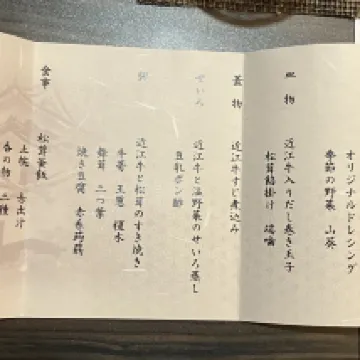 オリジナルドレッシング
季節の野菜 山葵
皿物
近江牛入りだし巻き玉子
松茸餡掛け
蓋物
近江牛すじ煮込み
せいろ
近江牛と温野菜のせいろ蒸し
豆乳ポン酢
近江牛と松茸のすき焼き
牛蒡 玉葱 榎木
舞茸 三つ葉
焼き豆腐 赤蒟蒻
食事
松茸釜飯
香の物 二種